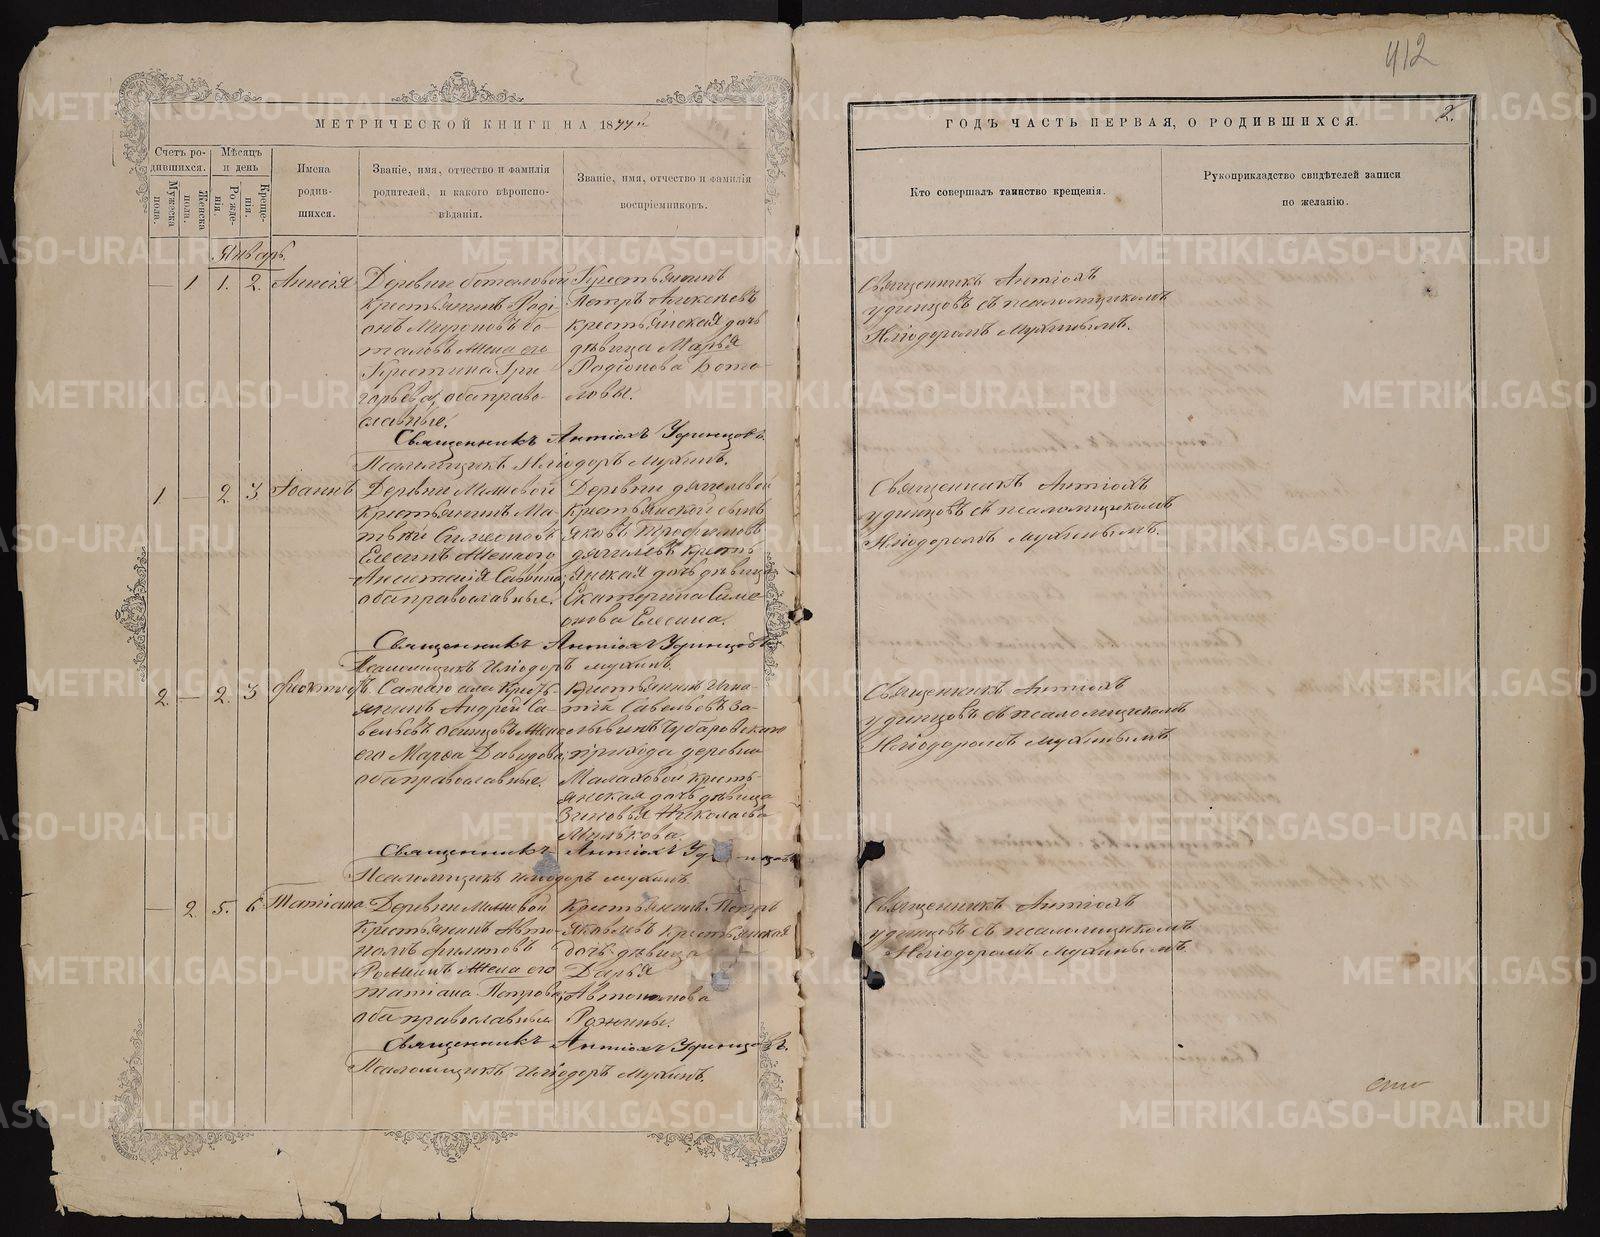 412
2.
МЕТРИЧЕСКОЙ КНИГИ НА 1877й
ГОДЪ ЧАСТЬ ПЕРВАЯ, О РОДИВШИХСЯ.
Счетъ родившихся.
Мужеска пола.
Женска пола.
Мѣсяцъ и день
Рожденія.
Крещенія.
Имена
родив-
шихся.
Званіе, имя, отчество и фамилія
родителей, и какого вѣроиспо-
вѣданія.
Званіе, имя, отчество и фамилія
воспріемниковъ.
Кто совершалъ таинство крещенія.
Рукоприкладство свидѣтелей записи
по желанію.
Январь.
— 1 1. 2.
Деревни
Крестьянинъ Раді-
онъ Мироновъ Бо-
таловъ жена его
Григорьева, оба право-
славные.
Крестьянинъ
Петръ
крестьянская дочь
дѣвица Марья
Радіонова Бота-
ловы.
Священникъ Антіохъ Удинцовъ.
Псаломщикъ Иліодоръ Мухинъ.
Священникъ Антіохъ
Удинцовъ съ псаломщикомъ
Иліодоромъ Мухинымъ.
1 — 2 3 Іоаннъ
Деревни
крестьянинъ Ма-
твѣй Симеоновъ
Елесинъ жена его
Анастасія Саввина,
оба православные.
Деревни
крестьянскій сынъ
Яковъ Трофимовъ
кресть-
янская дочь дѣвица
Екатерина Симе-
онова Елесина.
Священникъ Антіохъ Удинцовъ
Псаломщикъ Иліодоръ Мухинъ.
Священникъ Антіохъ
Удинцовъ съ псаломщикомъ
Иліодоромъ Мухинымъ.
2. — 2. 3
Самаго села Кресть-
янинъ Андрей Са-
вельевъ Осинцовъ жена
его Марѳа Давидова,
оба православные.
Крестьянинъ Игна-
тій Савельевъ
прихода деревни
Малаховой кресть-
янская дочь дѣвица
Зиновья Николаева
Милькова.
Священникъ Антіохъ Удинцовъ
Псаломщикъ Иліодоръ Мухинъ.
Священникъ Антіохъ
Удинцовъ съ псаломщикомъ
Иліодоромъ Мухинымъ
— 2 5. 6 Татіана
Деревни
Крестьянинъ Авто-
номъ
жена его
Татіана Петрова,
оба православные
Крестьянинъ Петръ
Яковлевъ крестьянская
дочь дѣвица
Дарья
Автономова
Священникъ Антіохъ Удинцовъ.
Псаломщикъ Иліодоръ Мухинъ.
Священникъ Антіохъ
Удинцовъ съ псаломщикомъ
Иліодоромъ Мухинымъ.
METRIKI.GASO-URAL.RU